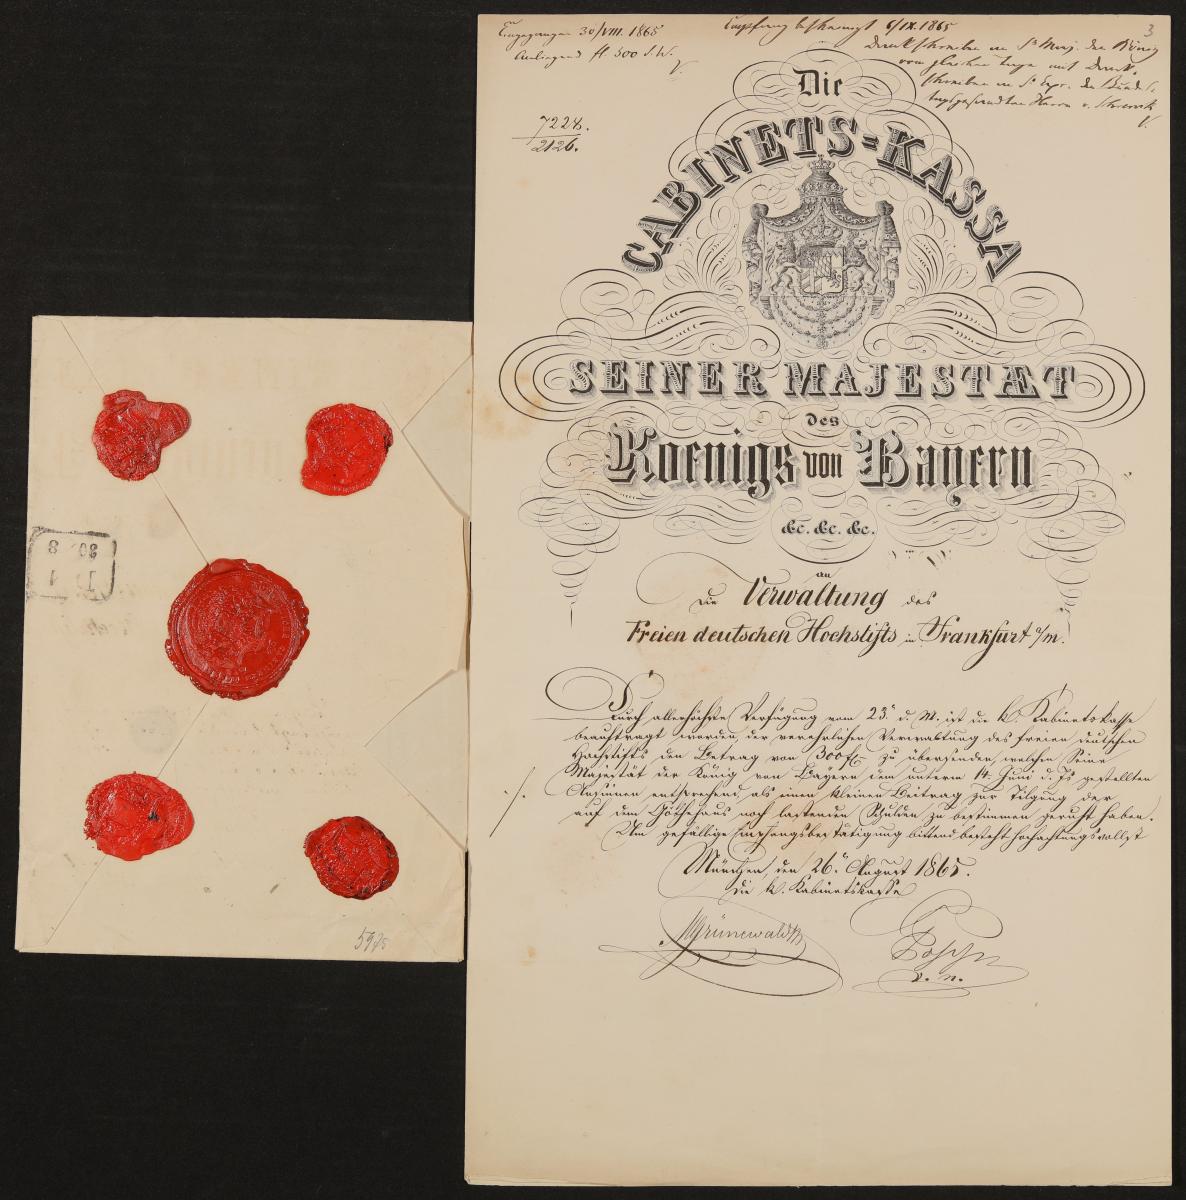 Eingegangen 30/VIII. 1865
Anliegend fl 300 S. W.
V.
7228.
2126.
Empfang bescheinigt 6/IX. 1865
3
Dankschreiben an Se Maj. den König
vom gleichen Tage mit
schreiben an Se Exc. den Bundes
tagsgesandten Herrn v. Schrenck
V.
Die
CABINETS=KASSA
SEINER MAJESTÆT
des
Koenigs von Bayern
&c. &c. &c.
an
die Verwaltung des
Freien deutschen Hochstifts in Frankfurt a/m.
Durch allerhöchste Verfügung vom 23. d. M. ist die k. Kabinetskasse
beauftragt worden der verehrlichen Verwaltung des freien deutschen
Hochstifts den Betrag von 300 fl. zu übersenden, welchen Seine
Majestät der König von Bayern dem unterm 14. Juni d. Js gestellten
Ansinnen entsprechend, als einen kleinen Beitrag zur Tilgung der
./.
auf dem Göthehaus noch lastenden Schulden zu bestimmen geruht haben.
Um gefällige Empfangsbestätigung bittend besteht hochachtungsvollst
München, den 26. August 1865.
die k. Kabinetskasse
Grünewald
30 8
5925